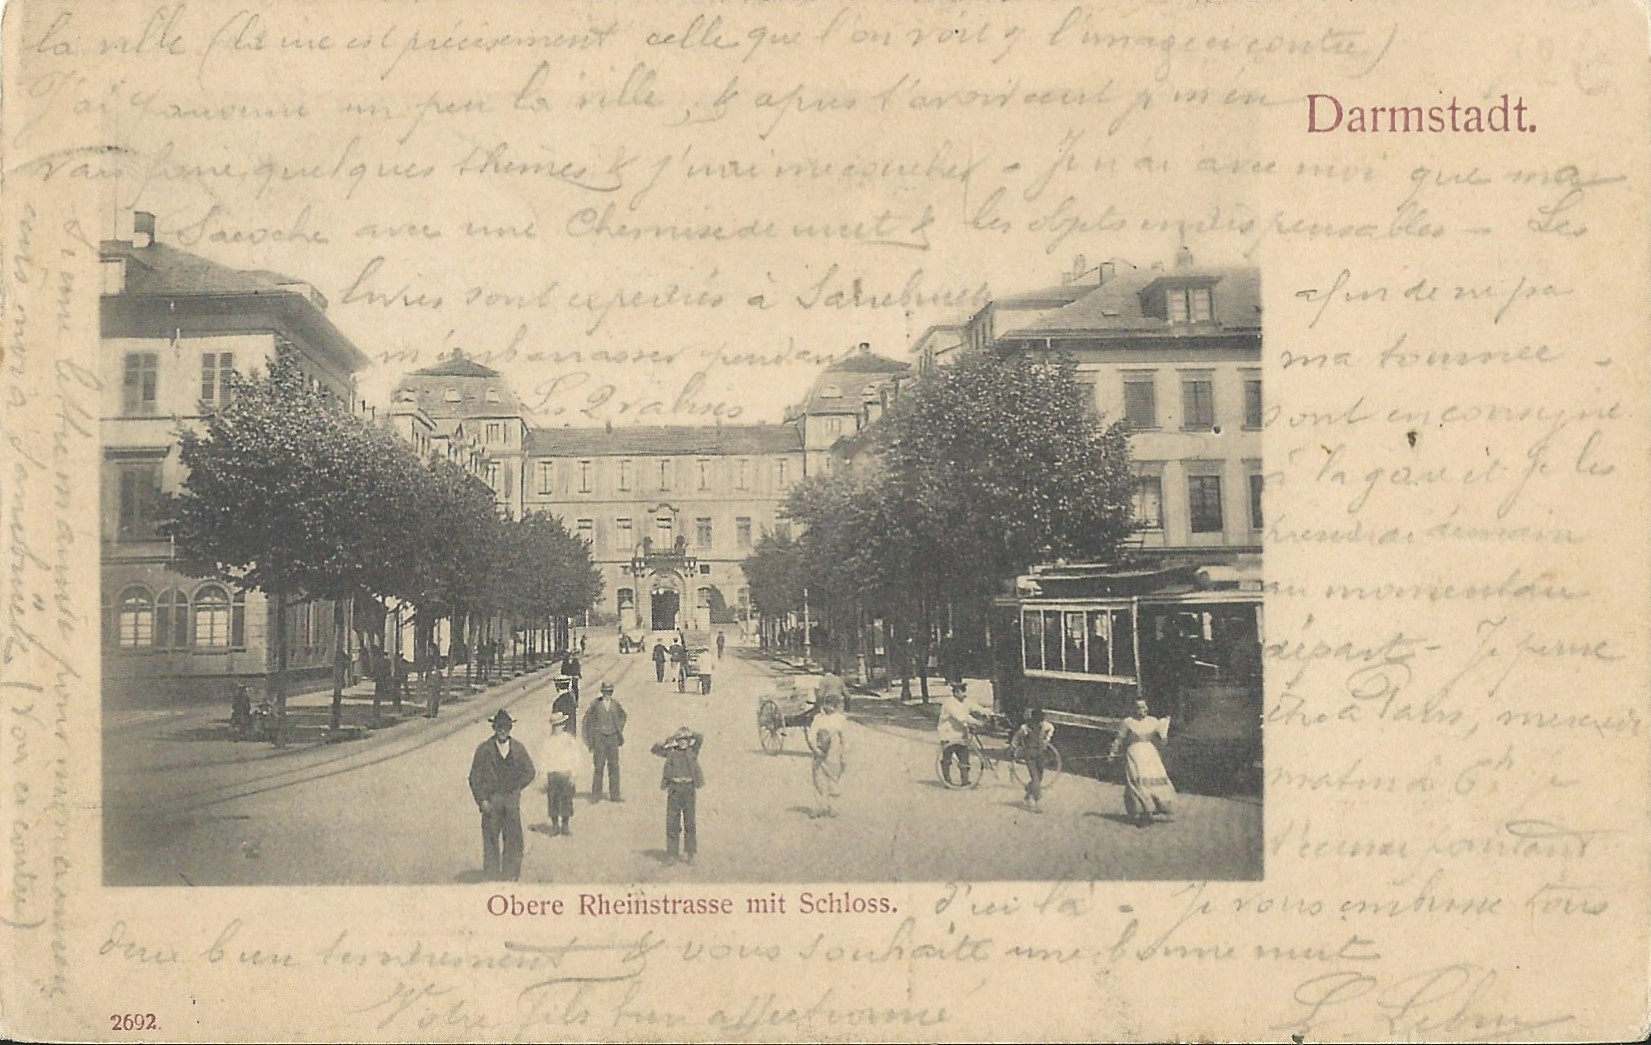 la ville (la vue est précisement celle que l'on voit à l'image ci contre)
J'ai parcouru un peu la ville, & apres t'avoir écrit je m'en
Darmstadt.
vais faire quelques thèmes & j'irai me coucher - Je n'ai avec moi que ma
Sacoche avec une Chemise de nuit & les objets indispensables - Les
livres sont expediés à Sarrebruck afin de ne pas
m'embarrasser pendant ma tournee -
Les 2 valises sont en consigne
à la gare et je les
prendrai demain
au moment du
départ - Je pense
être à Paris, mercredi
matin à 6h je
t'écrirai pourtant
Obere Rheinstrasse mit Schloss.
d'ici là - Je vous embrasse tous
deux bien tendrement & vous souhaite une bonne nuit
Votre fils bien affectionné
2692.
Si une lettre m'arrive pour moi
ecris moi à Sarrebruck (Voir ci contre)